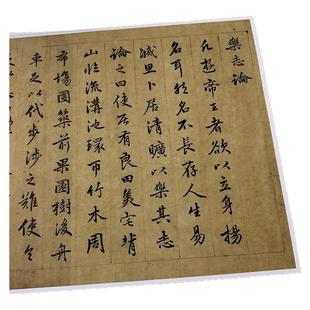 樂志論
凡遊帝王者欲以立身揚
名耳而名不長存人生易
滅且卜居清曠以樂其志
論之曰使居有良田美宅背
山臨流溝池環帀竹木周
布塲圃築前果園樹後舟
車足以代步涉之難使令